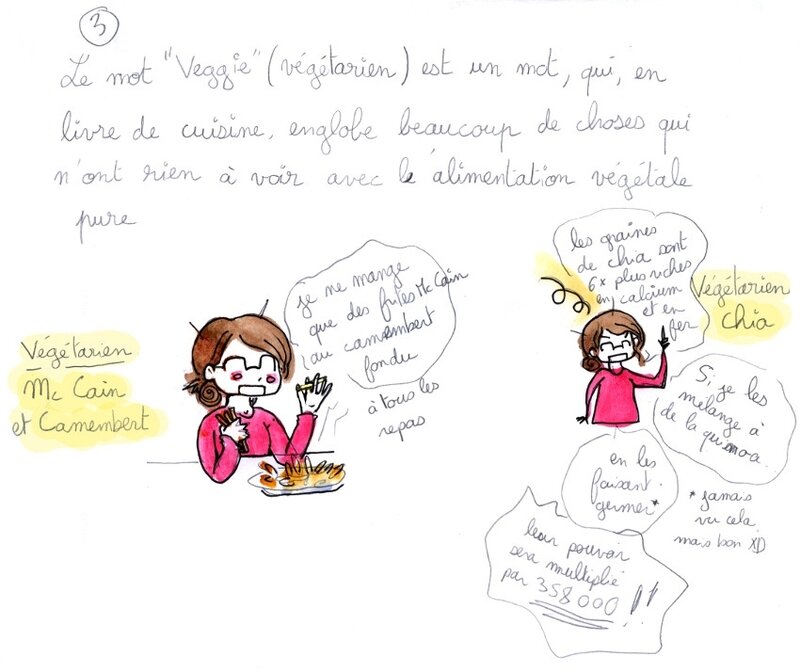 3
Le mot "Veggie" (végétarien) est un mot, qui, en
livre de cuisine, englobe beaucoup de choses qui
n'ont rien à voir avec le alimentation végétale
pure
Végétarien
Mc Cain
et Camembert
je ne mange
que des frites Mc Cain
au camembert
fondu
à tous les
repas
les graines
de chia sont
6x plus riches
en calcium
et en
fer
Végétarien
Chia
Si je les
mélange à
de la quinoa
en les
faisant
germer*
* jamais
vu cela,
mais bon XD
leur pouvoir
sera multiplié
par 358000 !!